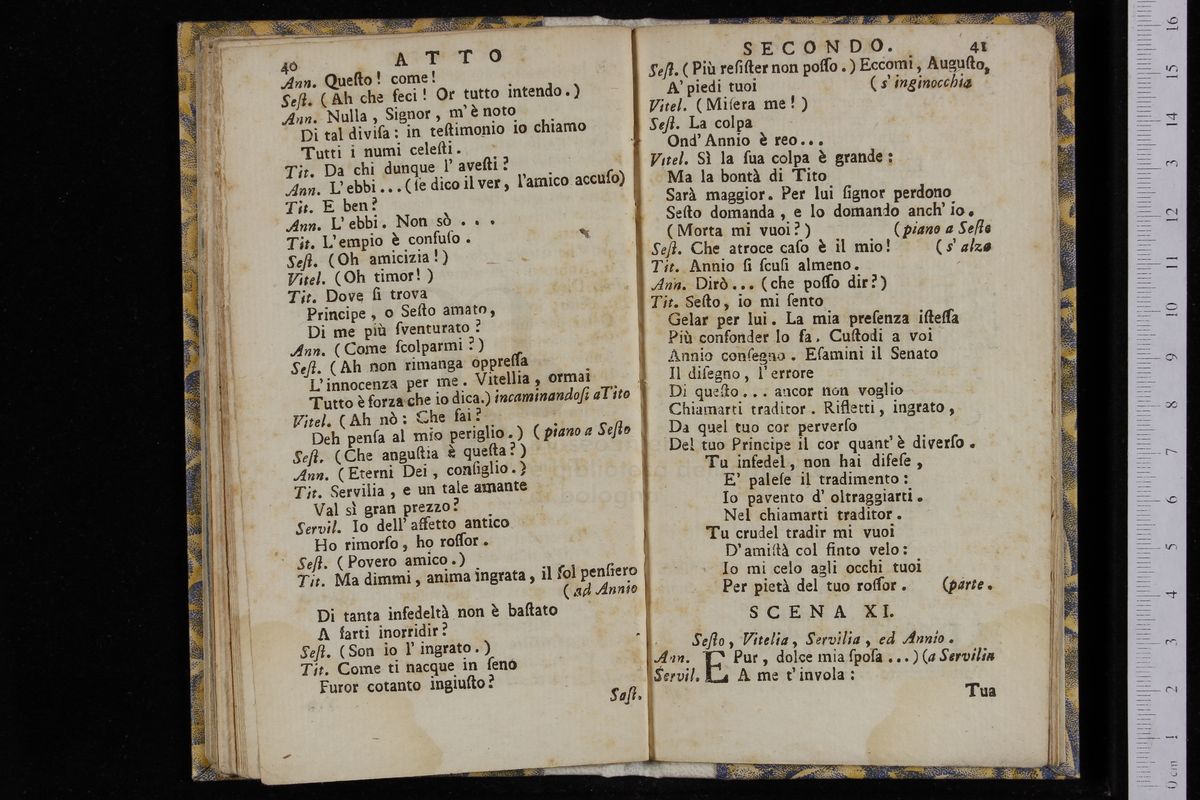 40 ATTO
Ann. Queſto! come!
Seſt. (Ah che feci! Or tutto intendo.)
Ann. Nulla, Signor, m'è noto
Di tal diviſa: in teſtimonio io chiamo
Tutti i numi celeſti.
Tit. Da chi dunque l'aveſti?
Ann. L'ebbi...(ſe dico il ver, l'amico accuſo)
Tit. E ben?
Ann. L'ebbi. Non sò...
Tit. L'empio è confuſo.
Seſt. (Oh amicizia!)
Vitel. (Oh timor!)
Tit. Dove ſi trova
Principe, o Seſto amato,
Di me più ſventurato?
Ann. (Come ſcolparmi?)
Seſt. (Ah non rimanga oppreſſa
L'innocenza per me. Vitellia, ormai
Tutto è forza che io dica.) incaminandoſi a Tito
Vitel. (Ah nò: Che fai?
Deh penſa al mio periglio.) (piano a Seſto
Seſt. (Che anguſtia è queſta?)
Ann. (Eterni Dei, conſiglio.)
Tit. Servilia, e un tale amante
Val sì gran prezzo?
Servil. Io dell'affetto antico
Ho rimorſo, ho roſſor.
Seſt. (Povero amico.)
Tit. Ma dimmi, anima ingrata, il ſol penſiero
(ad Annio
Di tanta infedeltà non è baſtato
A farti inorridir?
Seſt. (Son io l'ingrato.)
Tit. Come ti nacque in ſeno
Furor cotanto ingiuſto?
Saſt.
SECONDO. 41
Seſt. (Più reſiſter non poſſo.) Eccomi, Auguſto,
A' piedi tuoi (s'inginocchia
Vitel. (Miſera me!)
Seſt. La colpa
Ond'Annio è reo...
Vitel. Sì la ſua colpa è grande:
Ma la bontà di Tito
Sarà maggior. Per lui ſignor perdono
Seſto domanda, e lo domando anch'io.
(Morta mi vuoi?) (piano a Seſto
Seſt. Che atroce caſo è il mio! (s'alza
Tit. Annio ſi ſcuſi almeno.
Ann. Dirò...(che poſſo dir?)
Tit. Seſto, io mi ſento
Gelar per lui. La mia preſenza iſteſſa
Più confonder lo fa. Cuſtodi a voi
Annio conſegno. Eſamini il Senato
Il diſegno, l'errore
Di queſto... ancor non voglio
Chiamarti traditor. Rifletti, ingrato,
Da quel tuo cor perverſo
Del tuo Principe il cor quant'è diverſo.
Tu infedel, non hai difeſe,
E' paleſe il tradimento:
Io pavento d'oltraggiarti.
Nel chiamarti traditor.
Tu crudel tradir mi vuoi
D'amiſtà col finto velo:
Io mi celo agli occhi tuoi
Per pietà del tuo roſſor. (parte.
SCENA XI.
Seſto, Vitelia, Servilia, ed Annio.
Ann. E Pur, dolce mia ſpoſa...) (a Servilia
Servil. A me t'invola:
Tua